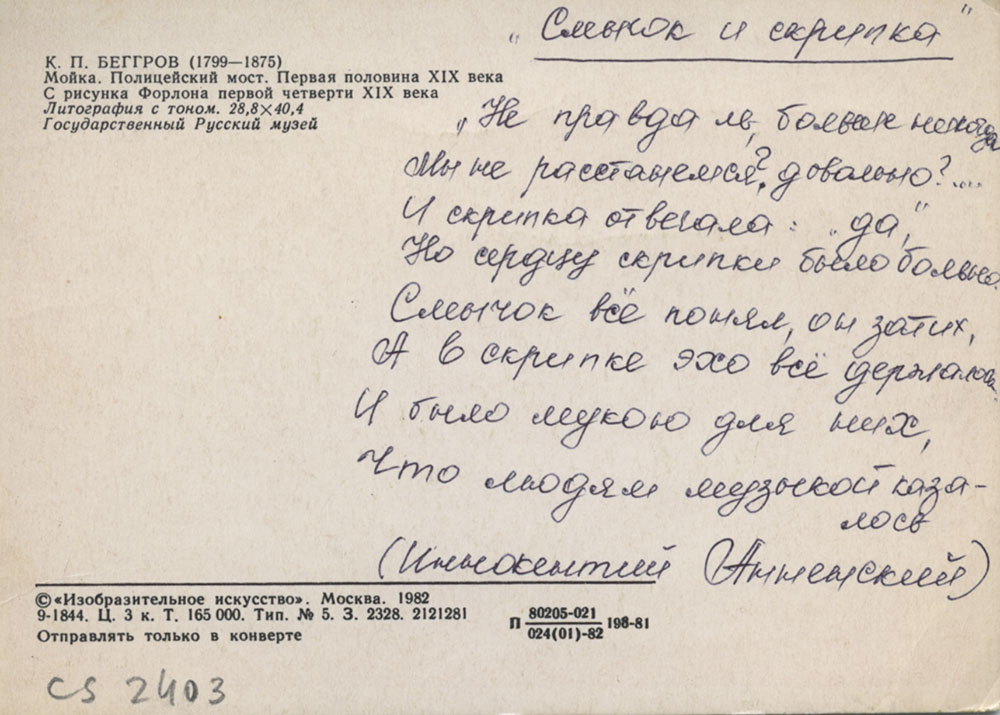 „Смычок и скрипка"
К. П. БЕГГРОВ (1799—1875)
Мойка. Полицейский мост. Первая половина XIX века
С рисунка Форлона первой четверти XIX века
Литография с тоном. 28,8×40,4
Государственный Русский музей
„Не правда ль, больше никогда
Мы не расстанемся?, довольно?....
И скрипка отвечала: „да",
Но сердцу скрипки было больно.
Смычок всё понял, он затих,
А в скрипке эхо всё держалось
И было мукою для них,
Что людям музыкой каза-
лось
(Иннокентий Анненский)
©«Изобразительное искусство». Москва. 1982
9-1844. Ц. 3 к. Т. 165 000. Тип. № 5. З. 2328. 2121281
Отправлять только в конверте
П 80205-021 198-81
024(01)-82
CS 2403